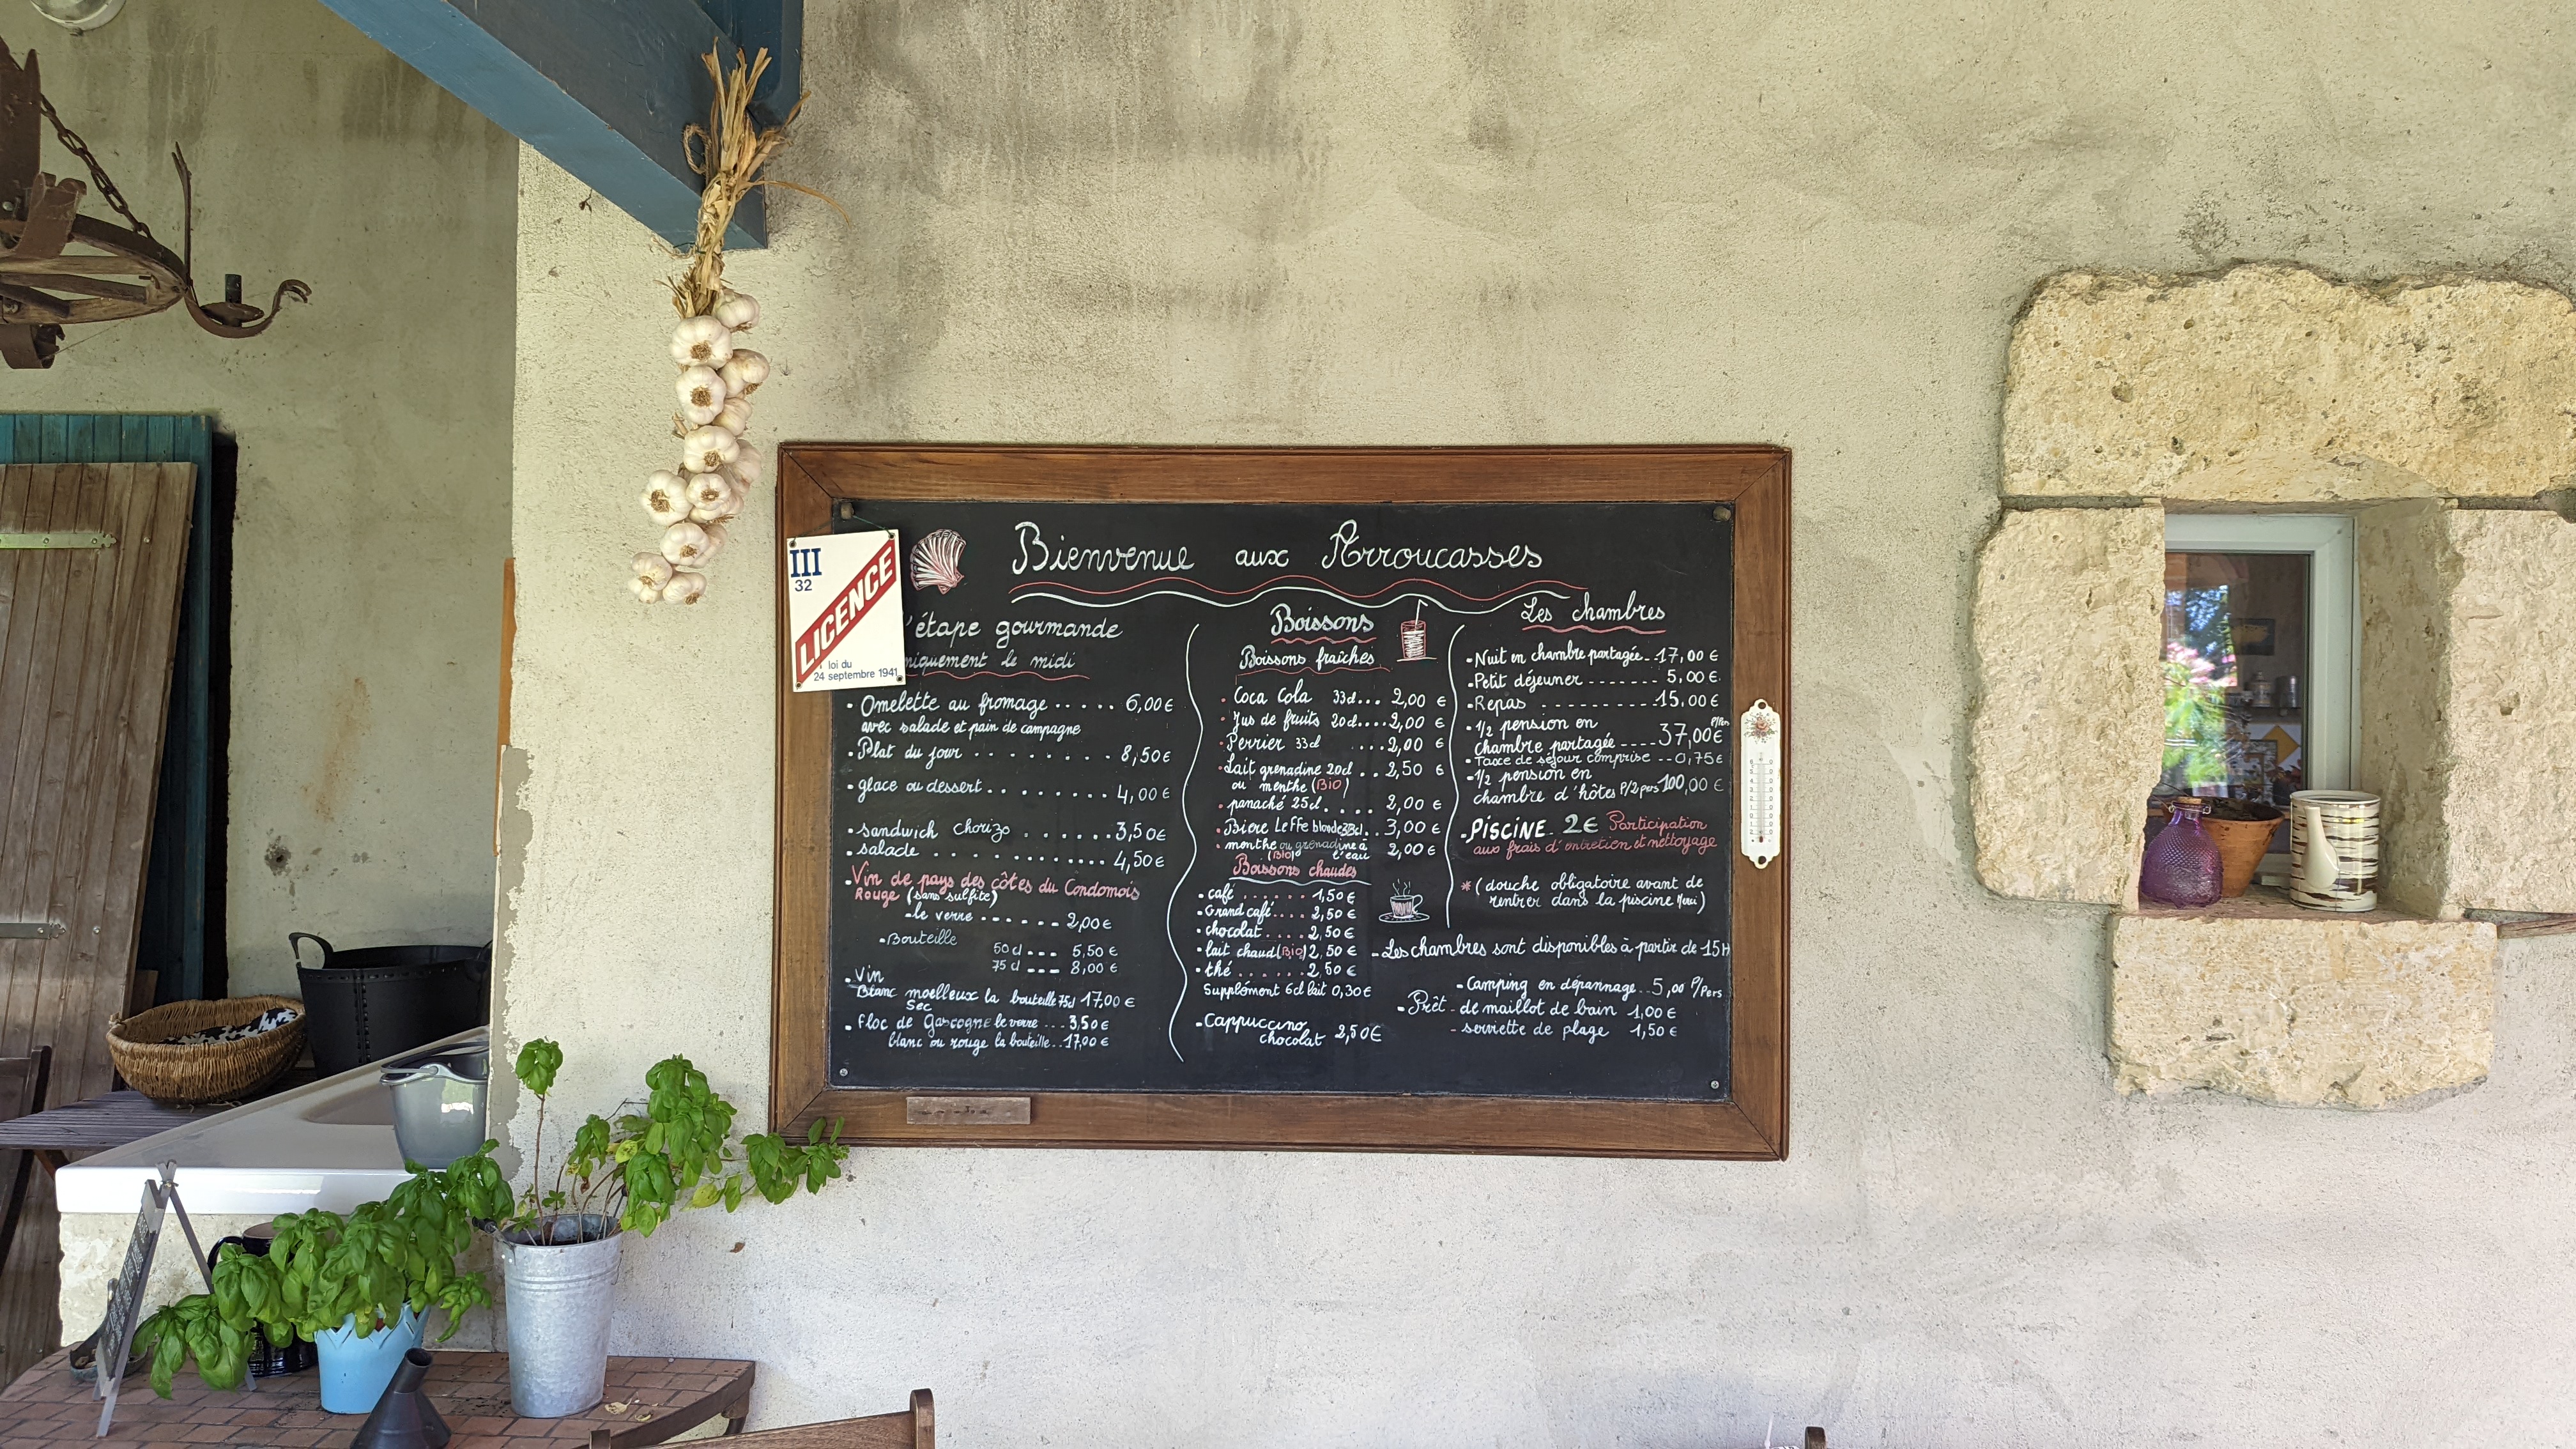 III
32
LICENCE
loi du
24 septembre 1941
Bienvenue aux Arroucasses
'étape gourmande
niquement le midi
• Omelette au fromage ..... 6,00 €
avec salade et pain de campagne
• Plat du jour ........ 8,50 €
• glace ou dessert ........ 4,00 €
• sandwich chorizo ...... 3,50 €
• salade .......... 4,50 €
• Vin de pays des côtes du Condomois
Rouge (sans sulfite)
- le verre ------ 2,00 €
- Bouteille
50 cl --- 5,50 €
75 cl --- 8,00 €
• Vin
Blanc moelleux la bouteille 75cl 17,00 €
Sec
• Floc de Gascogne le verre ... 3,50 €
blanc ou rouge la bouteille .. 17,00 €
Boissons
Boissons fraîches
• Coca Cola 33cl ... 2,00 €
• Jus de fruits 20cl .... 2,00 €
• Perrier 33cl .... 2,00 €
• Lait grenadine 20cl .. 2,50 €
ou menthe (Bio)
• panaché 25cl .... 2,00 €
• Biere Leffe blonde 33cl .. 3,00 €
• menthe ou grenadine à 2,00 €
(Bio) l'eau
Boissons chaudes
• café ....... 1,50 €
• Grand café .... 2,50 €
• chocolat .... 2,50 €
• lait chaud (Bio) 2,50 €
• thé ...... 2,50 €
Supplément 6cl lait 0,30 €
- Cappuccino
chocolat 2,50 €
Les chambres
• Nuit en chambre partagée -- 17,00 €
• Petit déjeuner ------- 5,00 €
• Repas ---------- 15,00 €
• 1/2 pension en P/Pers
chambre partagée ---- 37,00 €
• Taxe de séjour comprise -- 0,75 €
- 1/2 pension en
chambre d'hôtes P/2 pers 100,00 €
- PISCINE - 2€ Participation
aux frais d'entretien et nettoyage
* (douche obligatoire avant de
rentrer dans la piscine Merci)
- Les chambres sont disponibles à partir de 15H
- Camping en dépannage -- 5,00 P/Pers
- Prêt - de maillot de bain 1,00 €
- serviette de plage 1,50 €